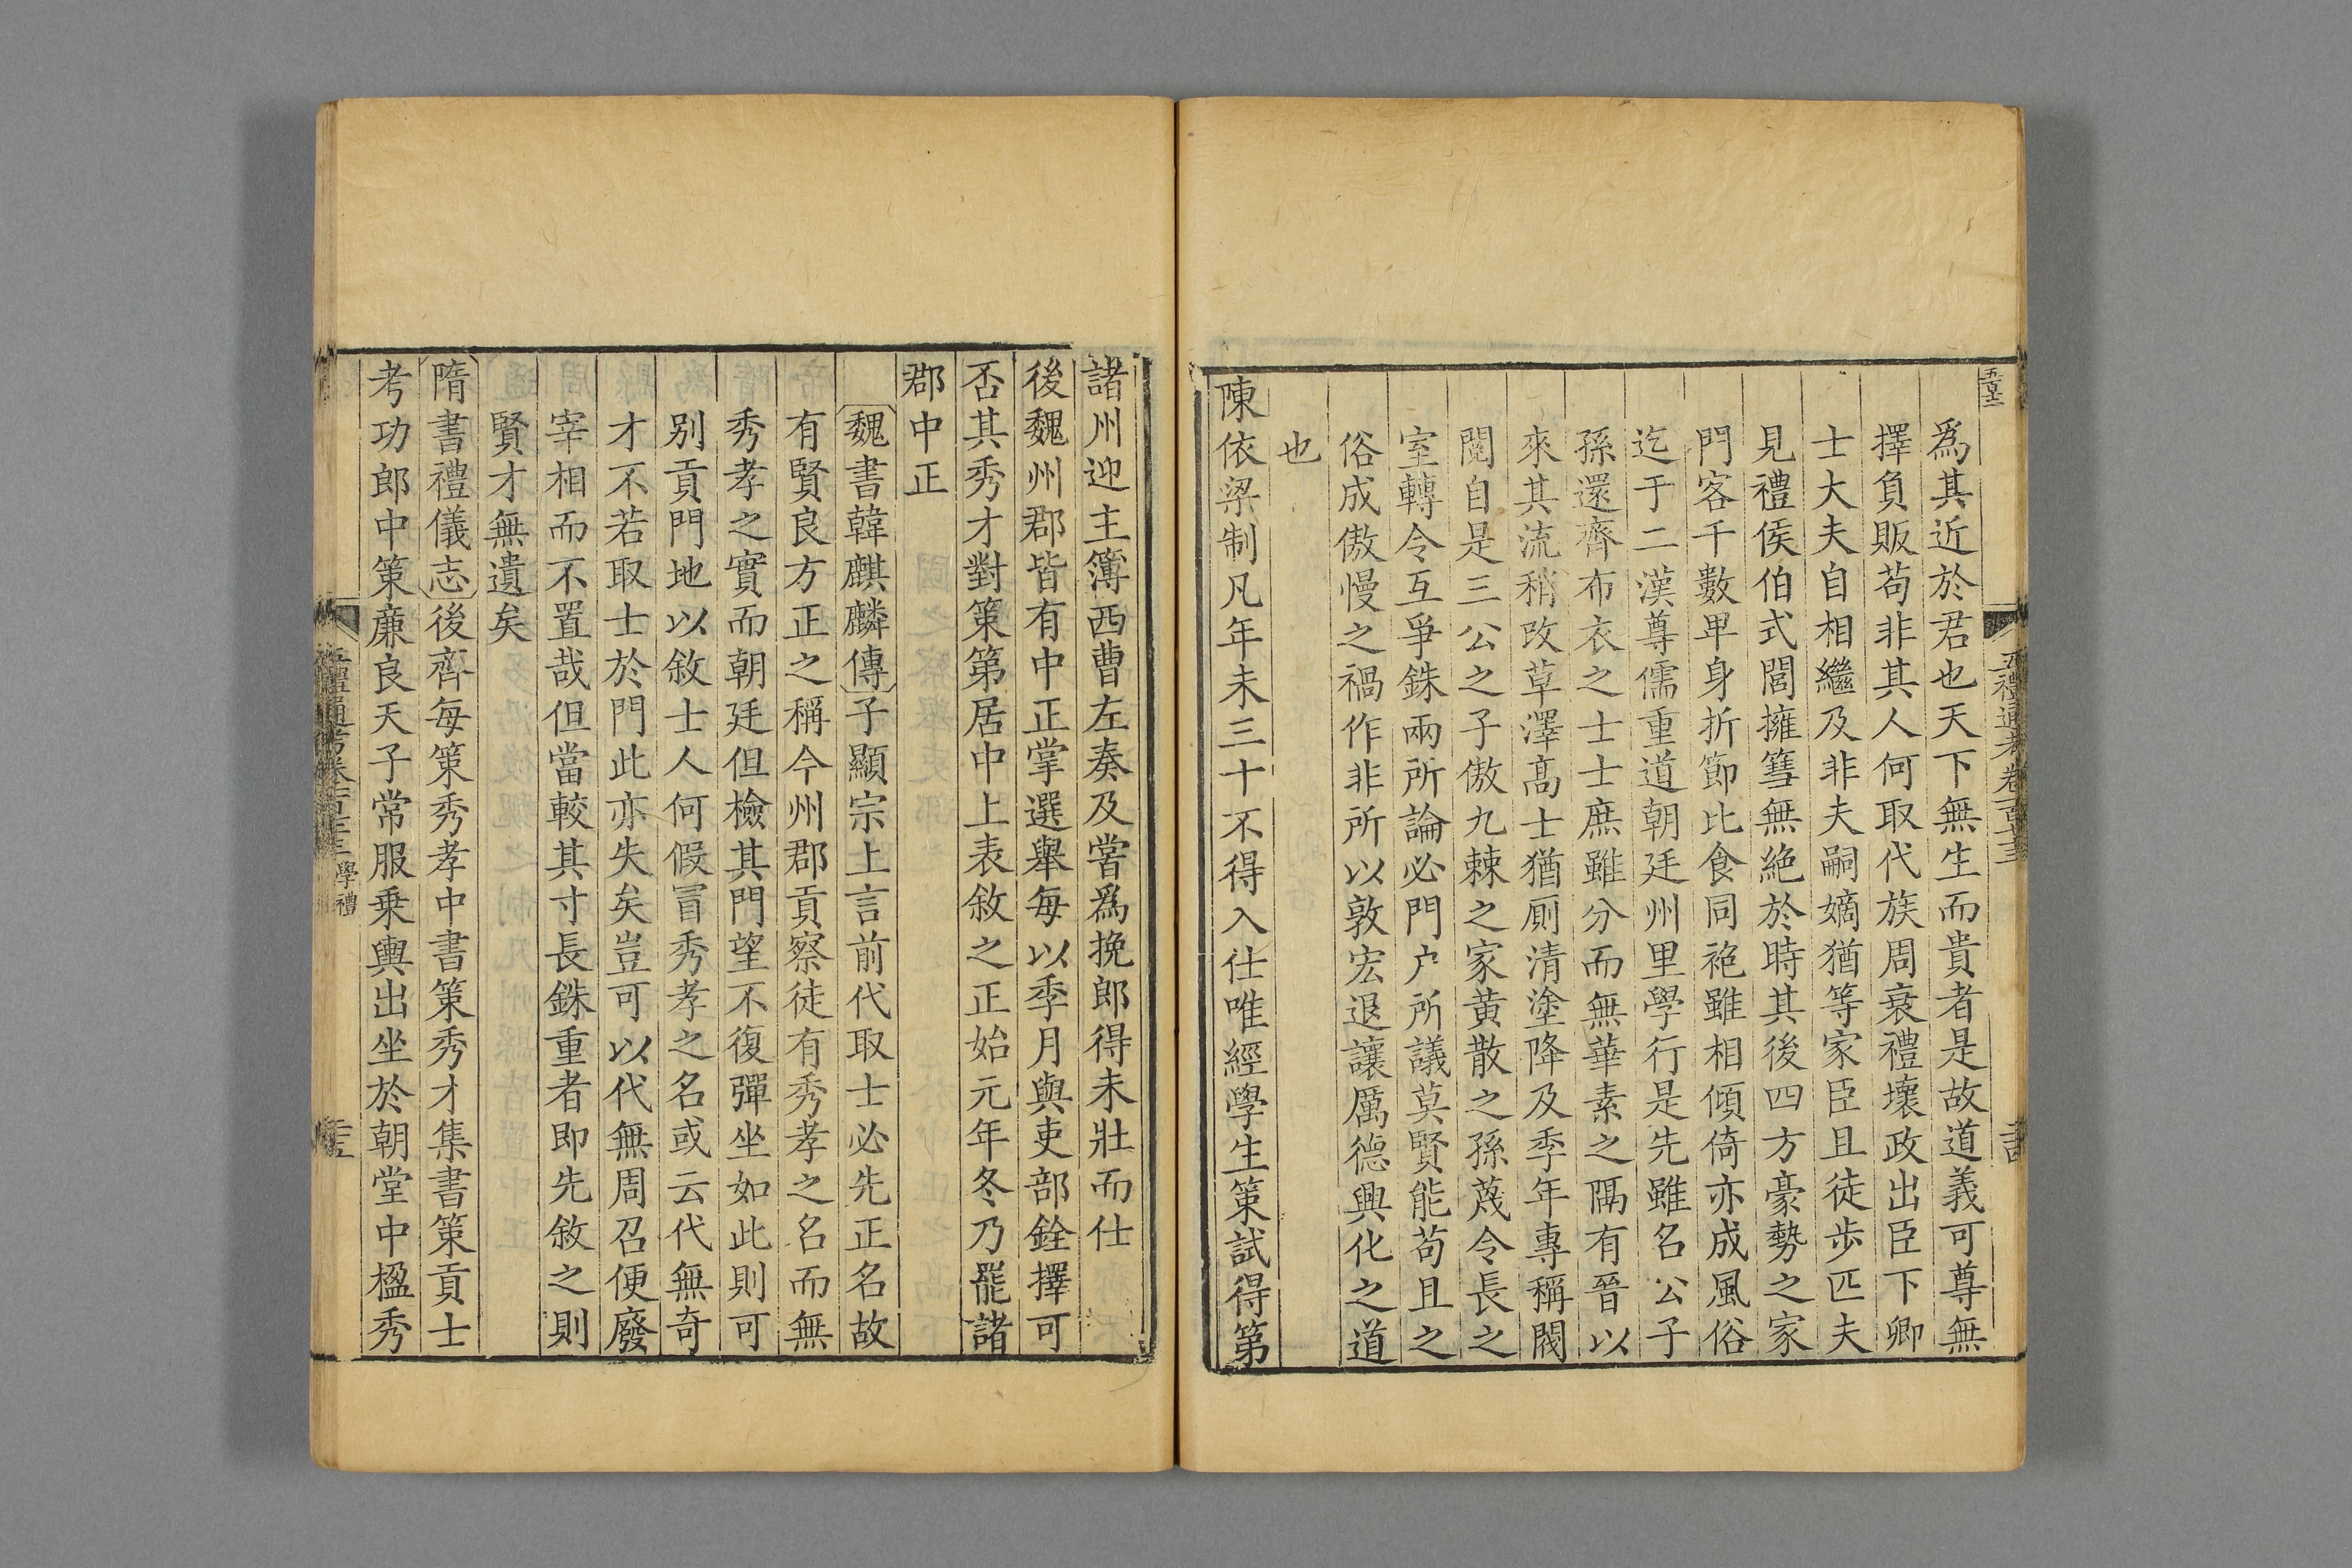 爲其近於君也天下無生而貴者是故道義可尊無
擇負販苟非其人何取代族周衰禮壞政出臣下卿
士大夫自相繼及非夫嗣嫡猶等家臣且徒步匹夫
見禮侯伯式閭擁篲無絶於時其後四方豪勢之家
門客千數卑身折節比食同袍雖相傾倚亦成風俗
迄于二漢尊儒重道朝廷州里學行是先雖名公子
孫還齊布衣之士士庶雖分而無華素之隔有晉以
來其流稍改草澤高士猶厠清塗降及季年專稱閥
閱自是三公之子傲九棘之家黃散之孫蔑令長之
室轉令互爭銖兩所論必門户所議莫賢能苟且之
俗成傲慢之禍作非所以敦宏退讓厲德興化之道
也
陳依梁制凡年未三十不得入仕唯經學生策試得第
諸州迎主簿西曹左奏及嘗爲挽郎得未壯而仕
後魏州郡皆有中正掌選舉每以季月與吏部銓擇可
否其秀才對策第居中上表敘之正始元年冬乃罷諸
郡中正
魏書韓麒麟傳子顯宗上言前代取士必先正名故
有賢良方正之稱今州郡貢察徒有秀孝之名而無
秀孝之實而朝廷但檢其門望不復彈坐如此則可
别貢門地以敘士人何假冒秀孝之名或云代無奇
才不若取士於門此亦失矣豈可以代無周召便廢
宰相而不置哉但當較其寸長銖重者即先敘之則
賢才無遺矣
隋書禮儀志後齊每策秀孝中書策秀才集書策貢士
考功郎中策廉良天子常服乗輿出坐於朝堂中楹秀
學禮